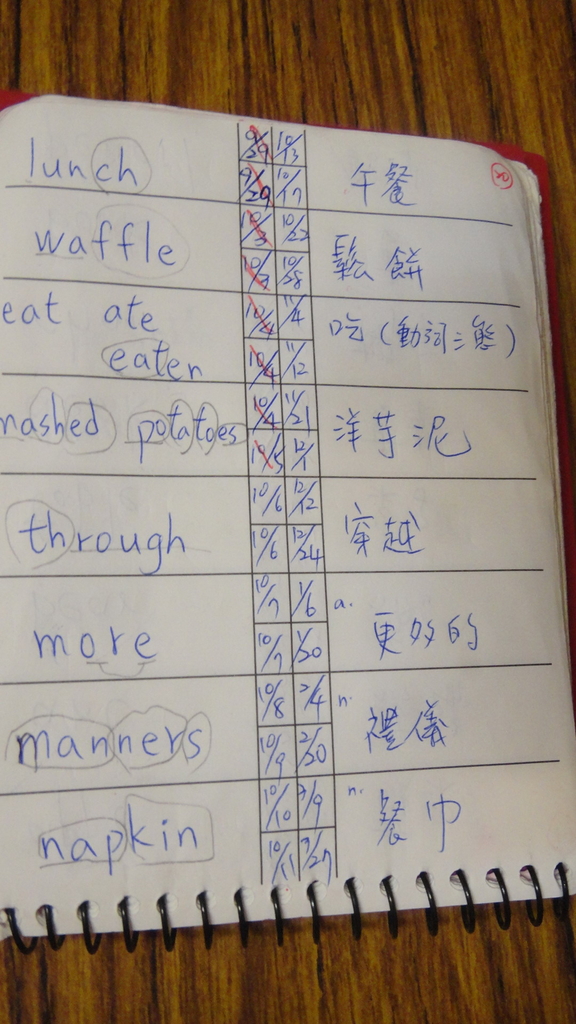 lunch 9/29 10/13 午餐 20
9/29 10/17
waffle 10/3 10/22 鬆餅
10/3 10/28
eat ate 10/4 11/4 吃(動詞三態)
eaten 10/4 11/12
mashed potatoes 10/4 11/21 洋芋泥
10/5 12/1
through 10/6 12/12 穿越
10/6 12/24
more 10/7 1/6 a. 更多的
10/7 1/20
manners 10/8 2/4 n. 禮儀
10/9 2/20
napkin 10/10 3/9 n. 餐巾
10/11 3/27